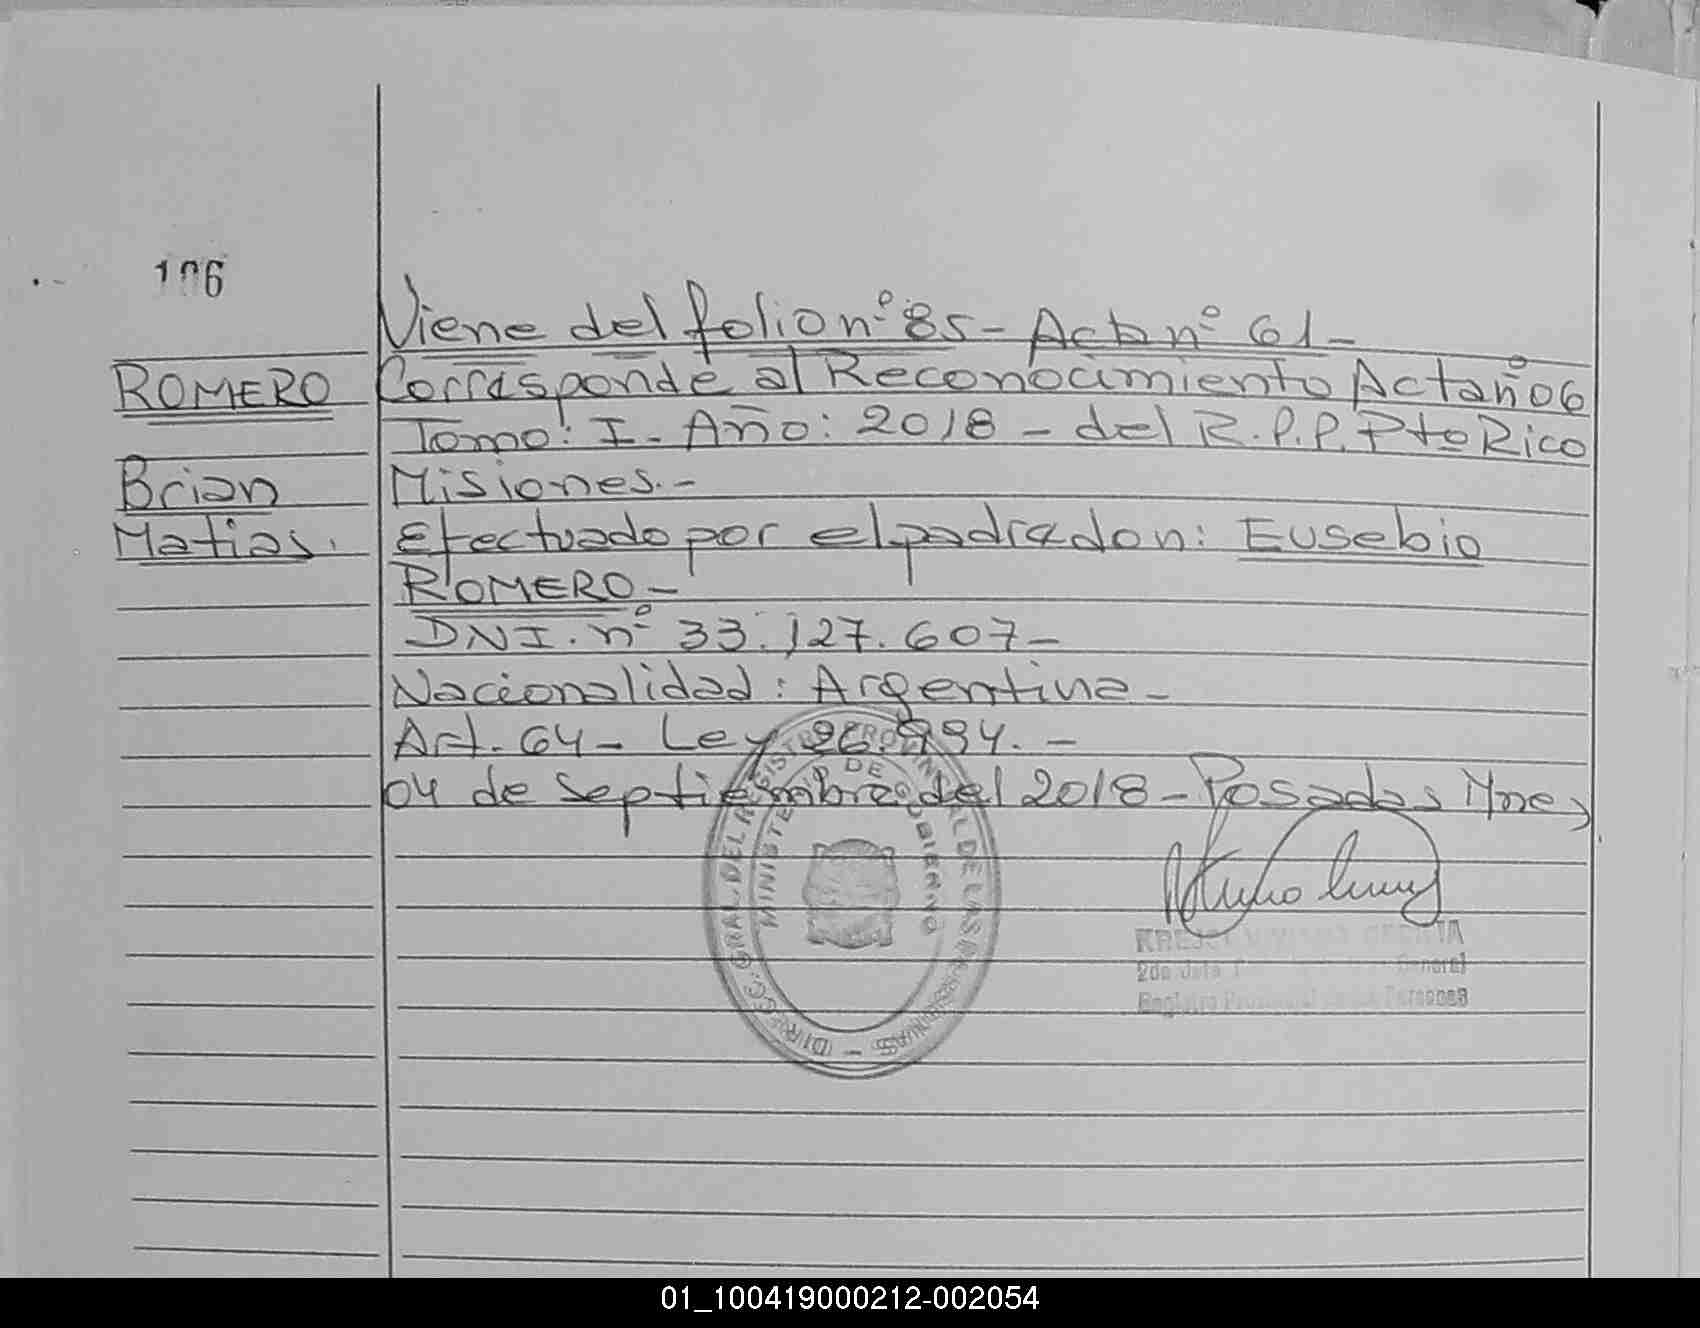 106
Viene del folio nº 85 - Acta nº 61 -
ROMERO
Corresponde al Reconocimiento Acta nº 06
Tomo: I - Año: 2018 - del R.P.P. Pto Rico
Brian
Misiones.-
Matias.
Efectuado por el padre don: Eusebio
ROMERO -
DNI. nº 33.127.607 -
Nacionalidad: Argentina -
Art. 64 - Ley 26.994. -
04 de septiembre del 2018 - Posadas Mnes
DIRECC. GRAL. DEL REGISTRO PROVINCIAL DE LAS PERSONAS
MINISTERIO DE GOBIERNO
2do General
Registro Personas
01_100419000212-002054